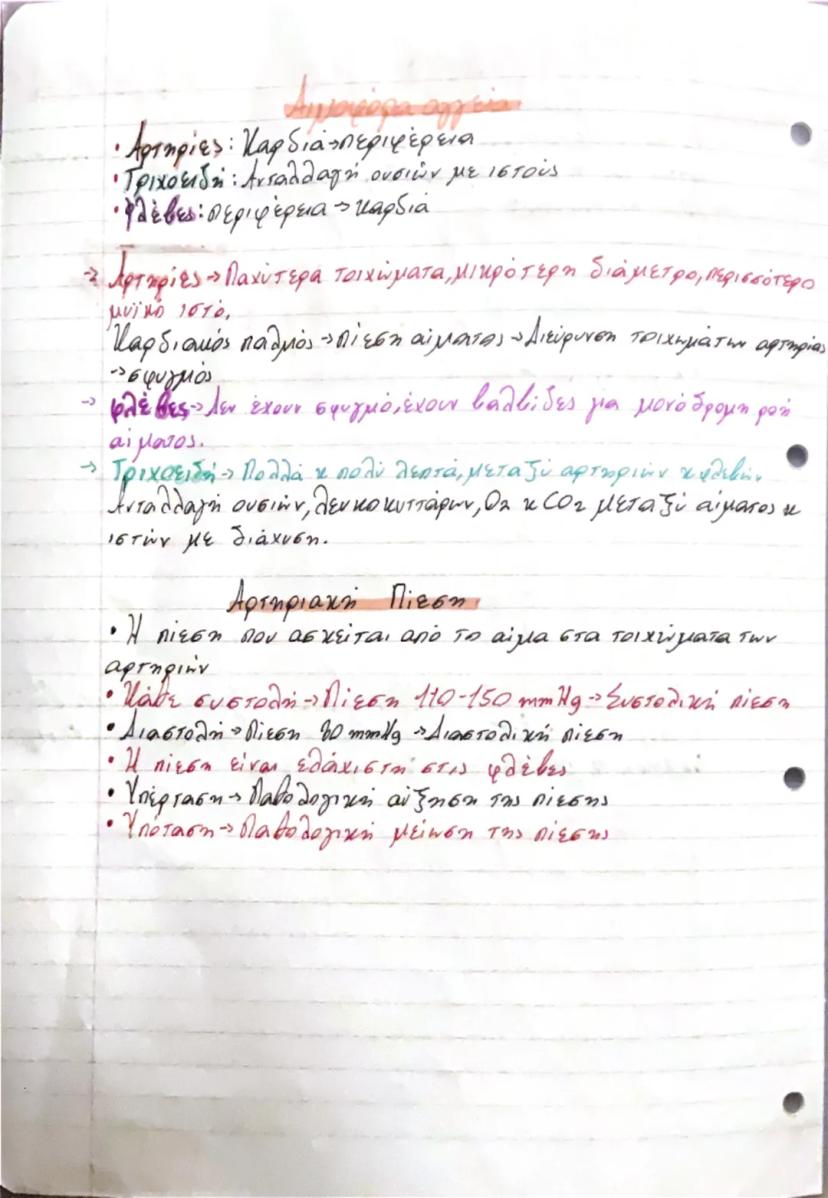 Αιμοφόρα αγγεία
• Αρτηρίες: Καρδιά→περιφέρεια
• Τριχοειδή: Ανταλλαγή ουσιών με ιστούς
• Φλέβες: περιφέρεια→καρδιά
→ Αρτηρίες→Παχύτερα τοιχώματα, μικρότερη διάμετρο, περισσότερο
μυϊκό ιστό.
Καρδιακός παλμός→πίεση αίματος→Διεύρυνση τοιχωμάτων αρτηρίας
→σφυγμός
→ Φλέβες→Δεν έχουν σφυγμό, έχουν βαλβίδες για μονόδρομη ροή
αίματος.
→ Τριχοειδή→Πολλά κ πολύ λεπτά, μεταξύ αρτηριών κ φλεβών
Ανταλλαγή ουσιών, λευκοκυττάρων, O2 κ CO2 μεταξύ αίματος κ
ιστών με διάχυση.
Αρτηριακή Πίεση
• Η πίεση που ασκείται από το αίμα στα τοιχώματα των
αρτηριών
• Κάθε συστολή→Πίεση 110-150 mmHg→Συστολική πίεση
• Διαστολή→Πίεση 80 mmHg→Διαστολική πίεση
• Η πίεση είναι ελάχιστη στις φλέβες
• Υπέρταση→Παθολογική αύξηση της πίεσης
• Υπόταση→Παθολογική μείωση της πίεσης